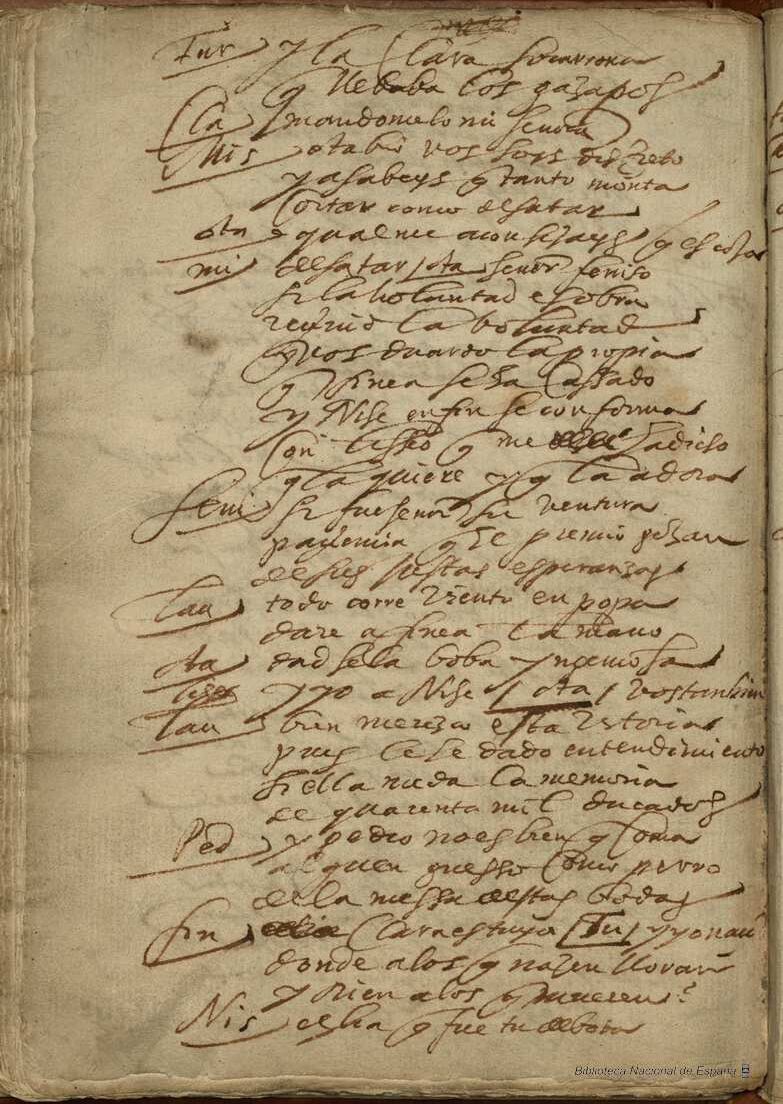 Tur y la Clara socarrona
q llebaba los gazapos
Cla mandomelo mi señora
Mis otabio vos soys discreto
ya sabeys q tanto monta
Cortar como desatar
ota qual me aconsejays q escoja
mi desatar / ota señor feniso
si la voluntad es obra
recivid la boluntad
y vos duardo la propia
q finea se ha Cassado
y Nise en fin se conforma
Con liseo q me ha dicho
q la quiere y q la adora
feni si fue señor su ventura
paciencia q el premio gozan
de sus justas esperanzas
lau todo corre viento en popa
dare a finea la mano
ota dadsela boba yngeniosa
lise y yo a Nise / ota / vos tanbien
lau bien merezco esta vitoria
pues le he dado entendimiento
si ella me da la memoria
de quarenta mil ducados
Ped y pedro no es bien q coma
algun guesso Como perro
de la messa destas bodas
fin Clara es tuya / Tu / y yo nací
donde a los q nazen lloran
y rien a los q mueren
Nis el ha q fue tu debota
Biblioteca Nacional de España